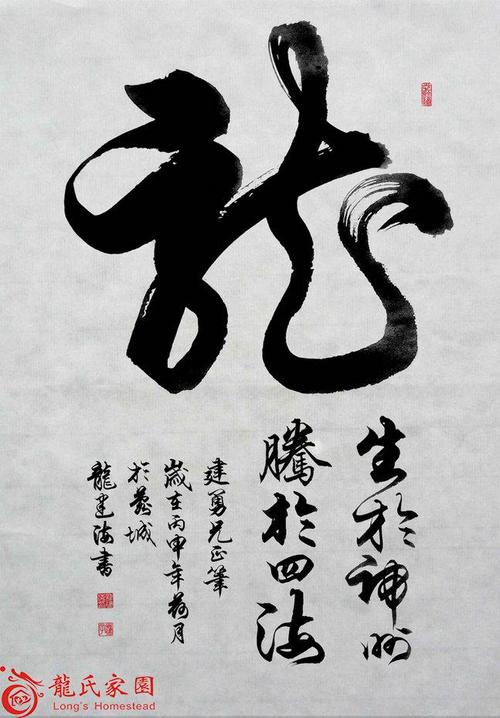 龍
生於神州
騰於四海
建勇兄正筆
歲在丙申年荷月
於蓉城
龍建海書
龍氏家園
Long's Homestead